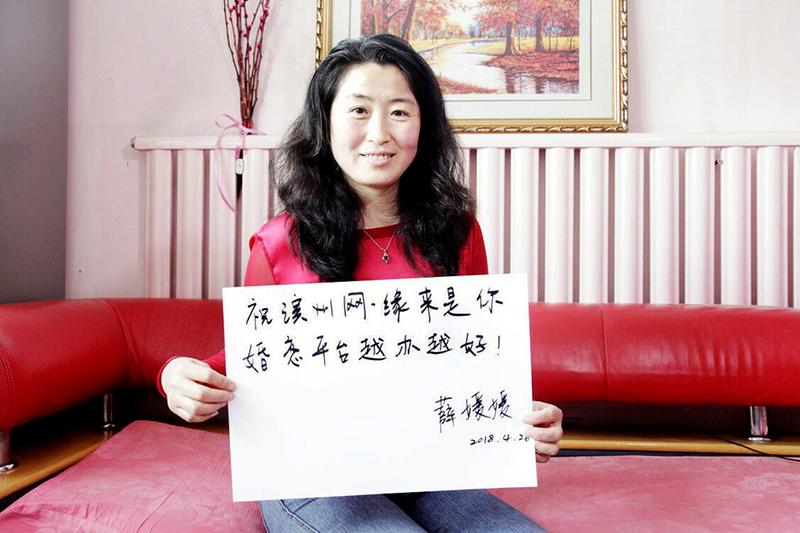 祝滨州网·缘来是你
婚恋平台越办越好！
薛媛媛
2018.4.26